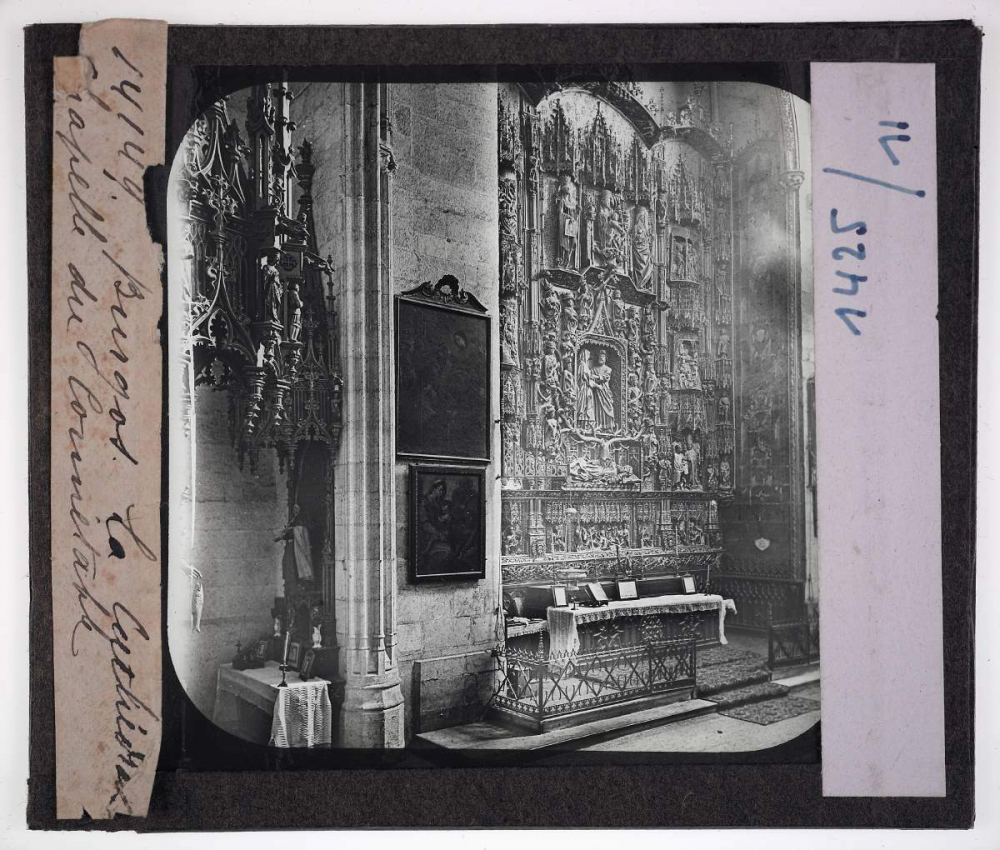 14149. Burgos. La Cathédrale
Chapelle du Connétable
1425/11